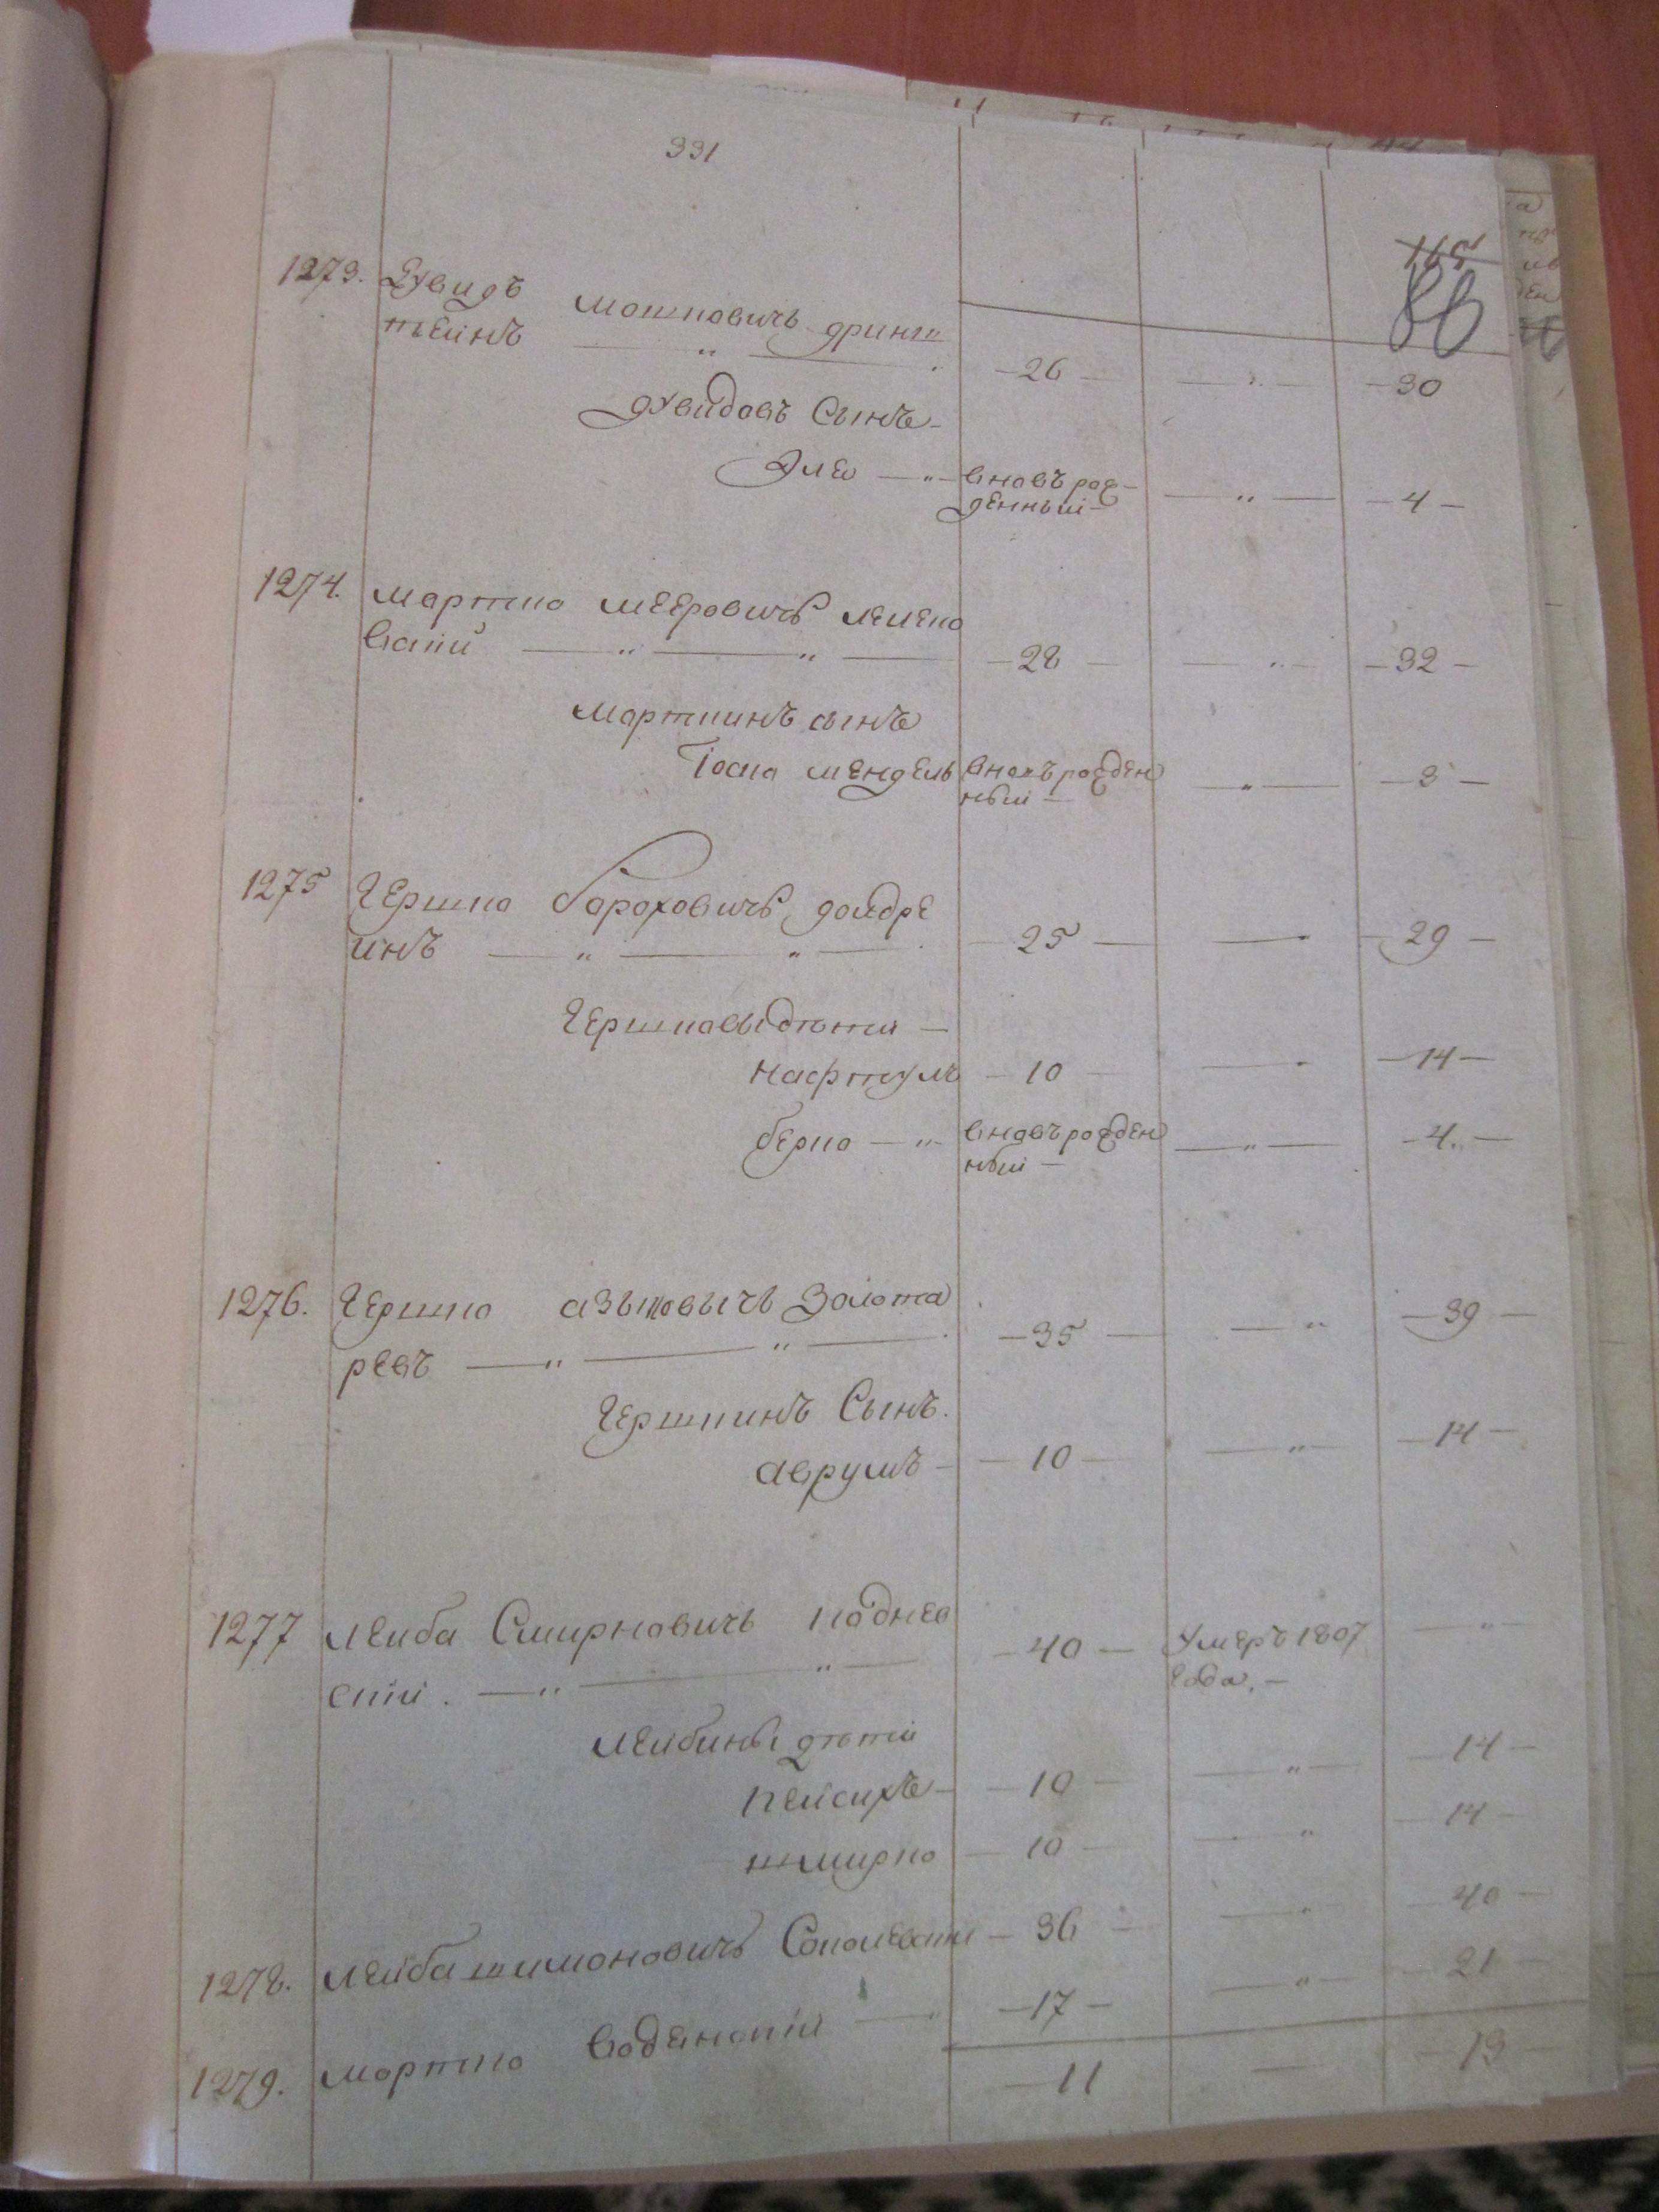 331
115
88
1273. Дувидъ Мошковичъ Дринш
теинъ — " — — 26 — — " — — 30
Дувидовъ Сынъ —
Элю — " — вновъ рож — — " — — 4 —
денный —
1274. Мортко Мееровичъ
— " — " — — 28 — — " — — 32 —
Мортки​нъ сынъ
Іосио Мендель вновъ рожден — " — — 3 —
ный —
1275 Гершко Бороховичъ Дойдре
инъ — " — " — — 25 — — — 29 —
Гершковы дѣти —
Нафтулъ — 10 — — — 14 —
Берко — " — вновъ рожден — " — — 4. —
ный —
1276. Гершко Азыковычъ Золота
ревъ — " — " — — 35 — — " — 39 —
Гершкинъ Сынъ.
Аврумъ — — 10 — — " — — 14 —
1277 Леиба Смирковичъ Поднес
скіи. — " — " — — 40 — Умеръ 1807 — " —
года. —
Леибины дѣти
Пейсихъ — — 10 — — " — — 14 —
Шмирко — 10 — — " — 14 —
1278. Леиба Шимоновичъ — 36 — — " — 40 —
1279. Мортко Воденскіи — — 17 — — " — — 21 —
— 11 — — 13 —